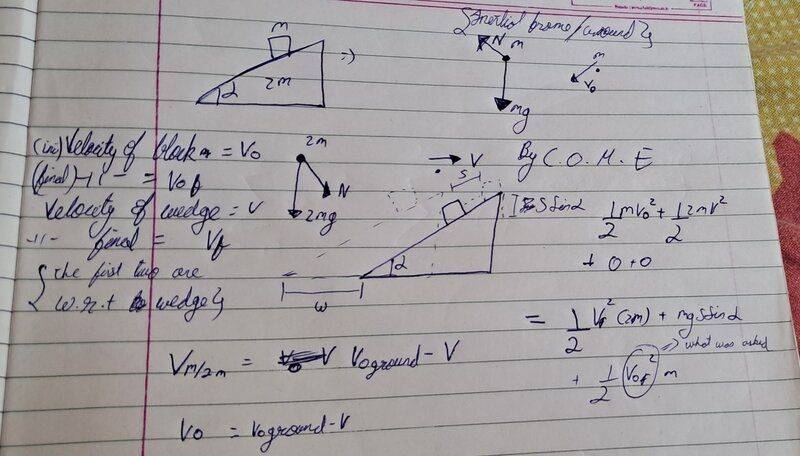 {Inertial frame/ground}
m
α
2m
N
m
mg
m
v₀
(ini) Velocity of block = V₀
(final) -11- = V₀f
Velocity of wedge = V
-11- final = Vf
{the first two are
w.r.t wedge}
2m
N
2mg
→ V
S
α
w
Ssinα
By C.O.M.E
1/2 mv₀² + 1/2 2mv²
+ 0 + 0
= 1/2 Vf² (2m) + mgSsinα
+ 1/2 V₀f² m
=> what was asked
Vm/2m = V₀ground - V
V₀ = V₀ground - V